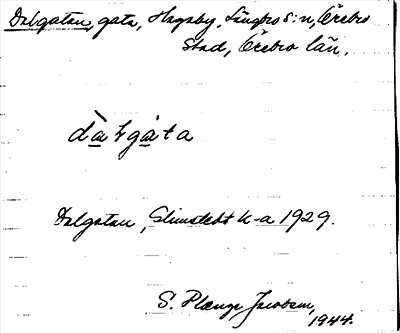 Dalgatan, gata, Hagaby, Längbro s:n, Örebro
stad, Örebro län.
dàlgàta
Dalgatan, K-a 1929.
S. Plænge Jacobson,
1944.